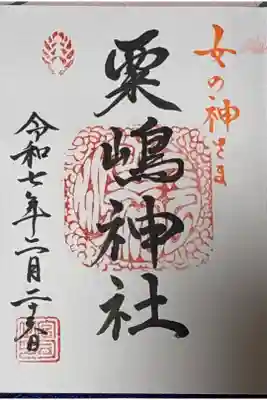 女の神さま
粟嶋神社
令和七年二月二十六日